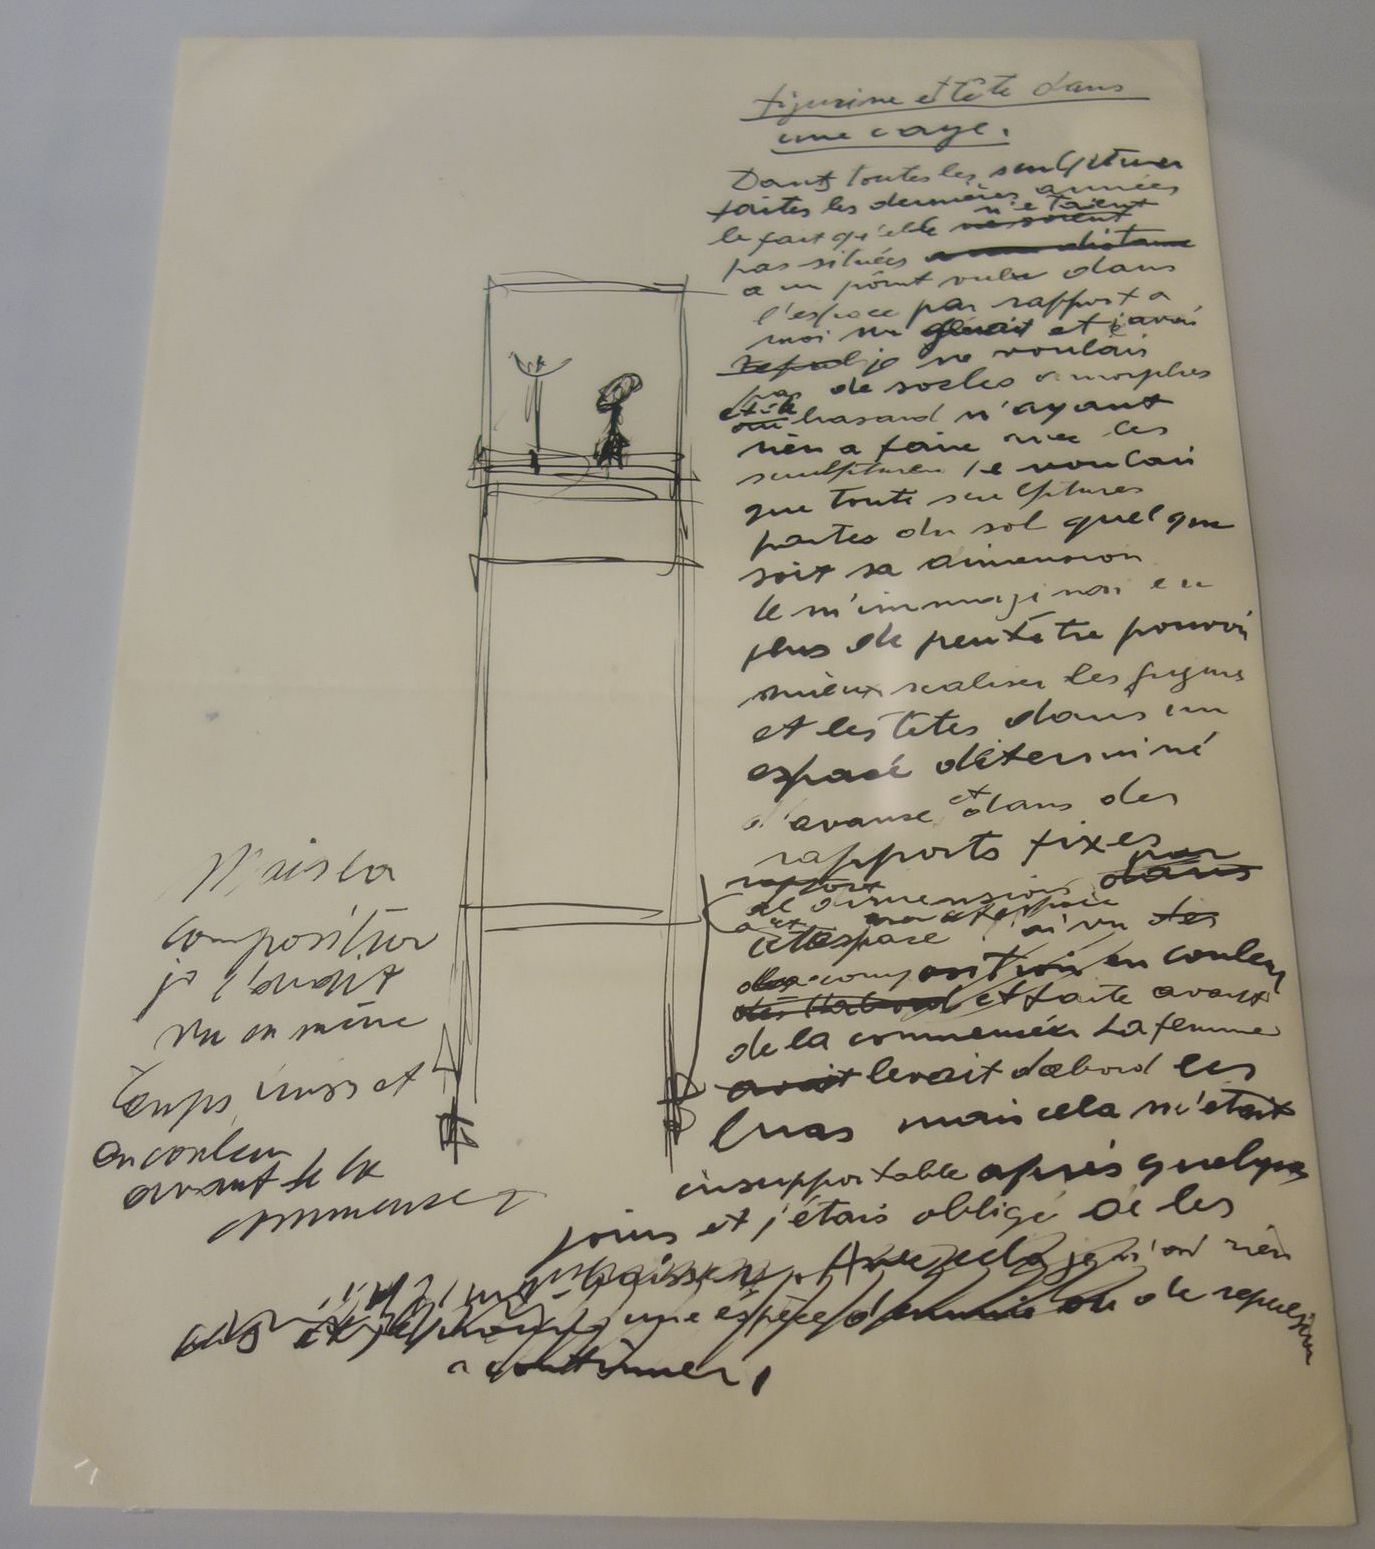 figurine et tête dans
une cage.
Dans toutes les sculptures
faites les dernières années
le fait qu'elle n'etaient
ne soient
pas situées a une distance
a un point dans
l'espace par rapport a
moi me genait et j'avais
je ne voulais
pas de socles amorphes
et de
ou hasard n'ayant
rien a faire avec les
sculptures je voulais
que toute sculptures
partes du sol quel que
soit sa dimension
Je m'immaginais en
plus de peutêtre pouvoir
mieux realiser les figures
et les têtes dans un
espace déterminé
d'avanse et dans des
rapports fixes
par
rapport dans
de dimensions
et
cet espace j'ai vu des
la composition en couleur
et faite avant
de la commencér La femme
avait levait dabord les
bras mais cela m'était
insupportable après quelques
jours et j'étais obligé de les
baisser. Avec cela je n'ai rien
une espèce d'ennui ou de repulsion
a continuer.
Mais la
composition
je l'avait
vu en même
temps et
en couleur
avant de la
commencer